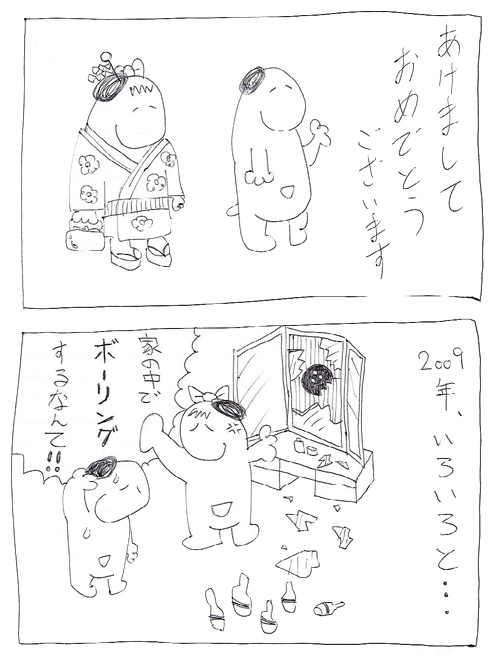 あけまして
おめでとう
ございます
2009年、いろいろと…
家の中で
ボーリング
するなんて!!